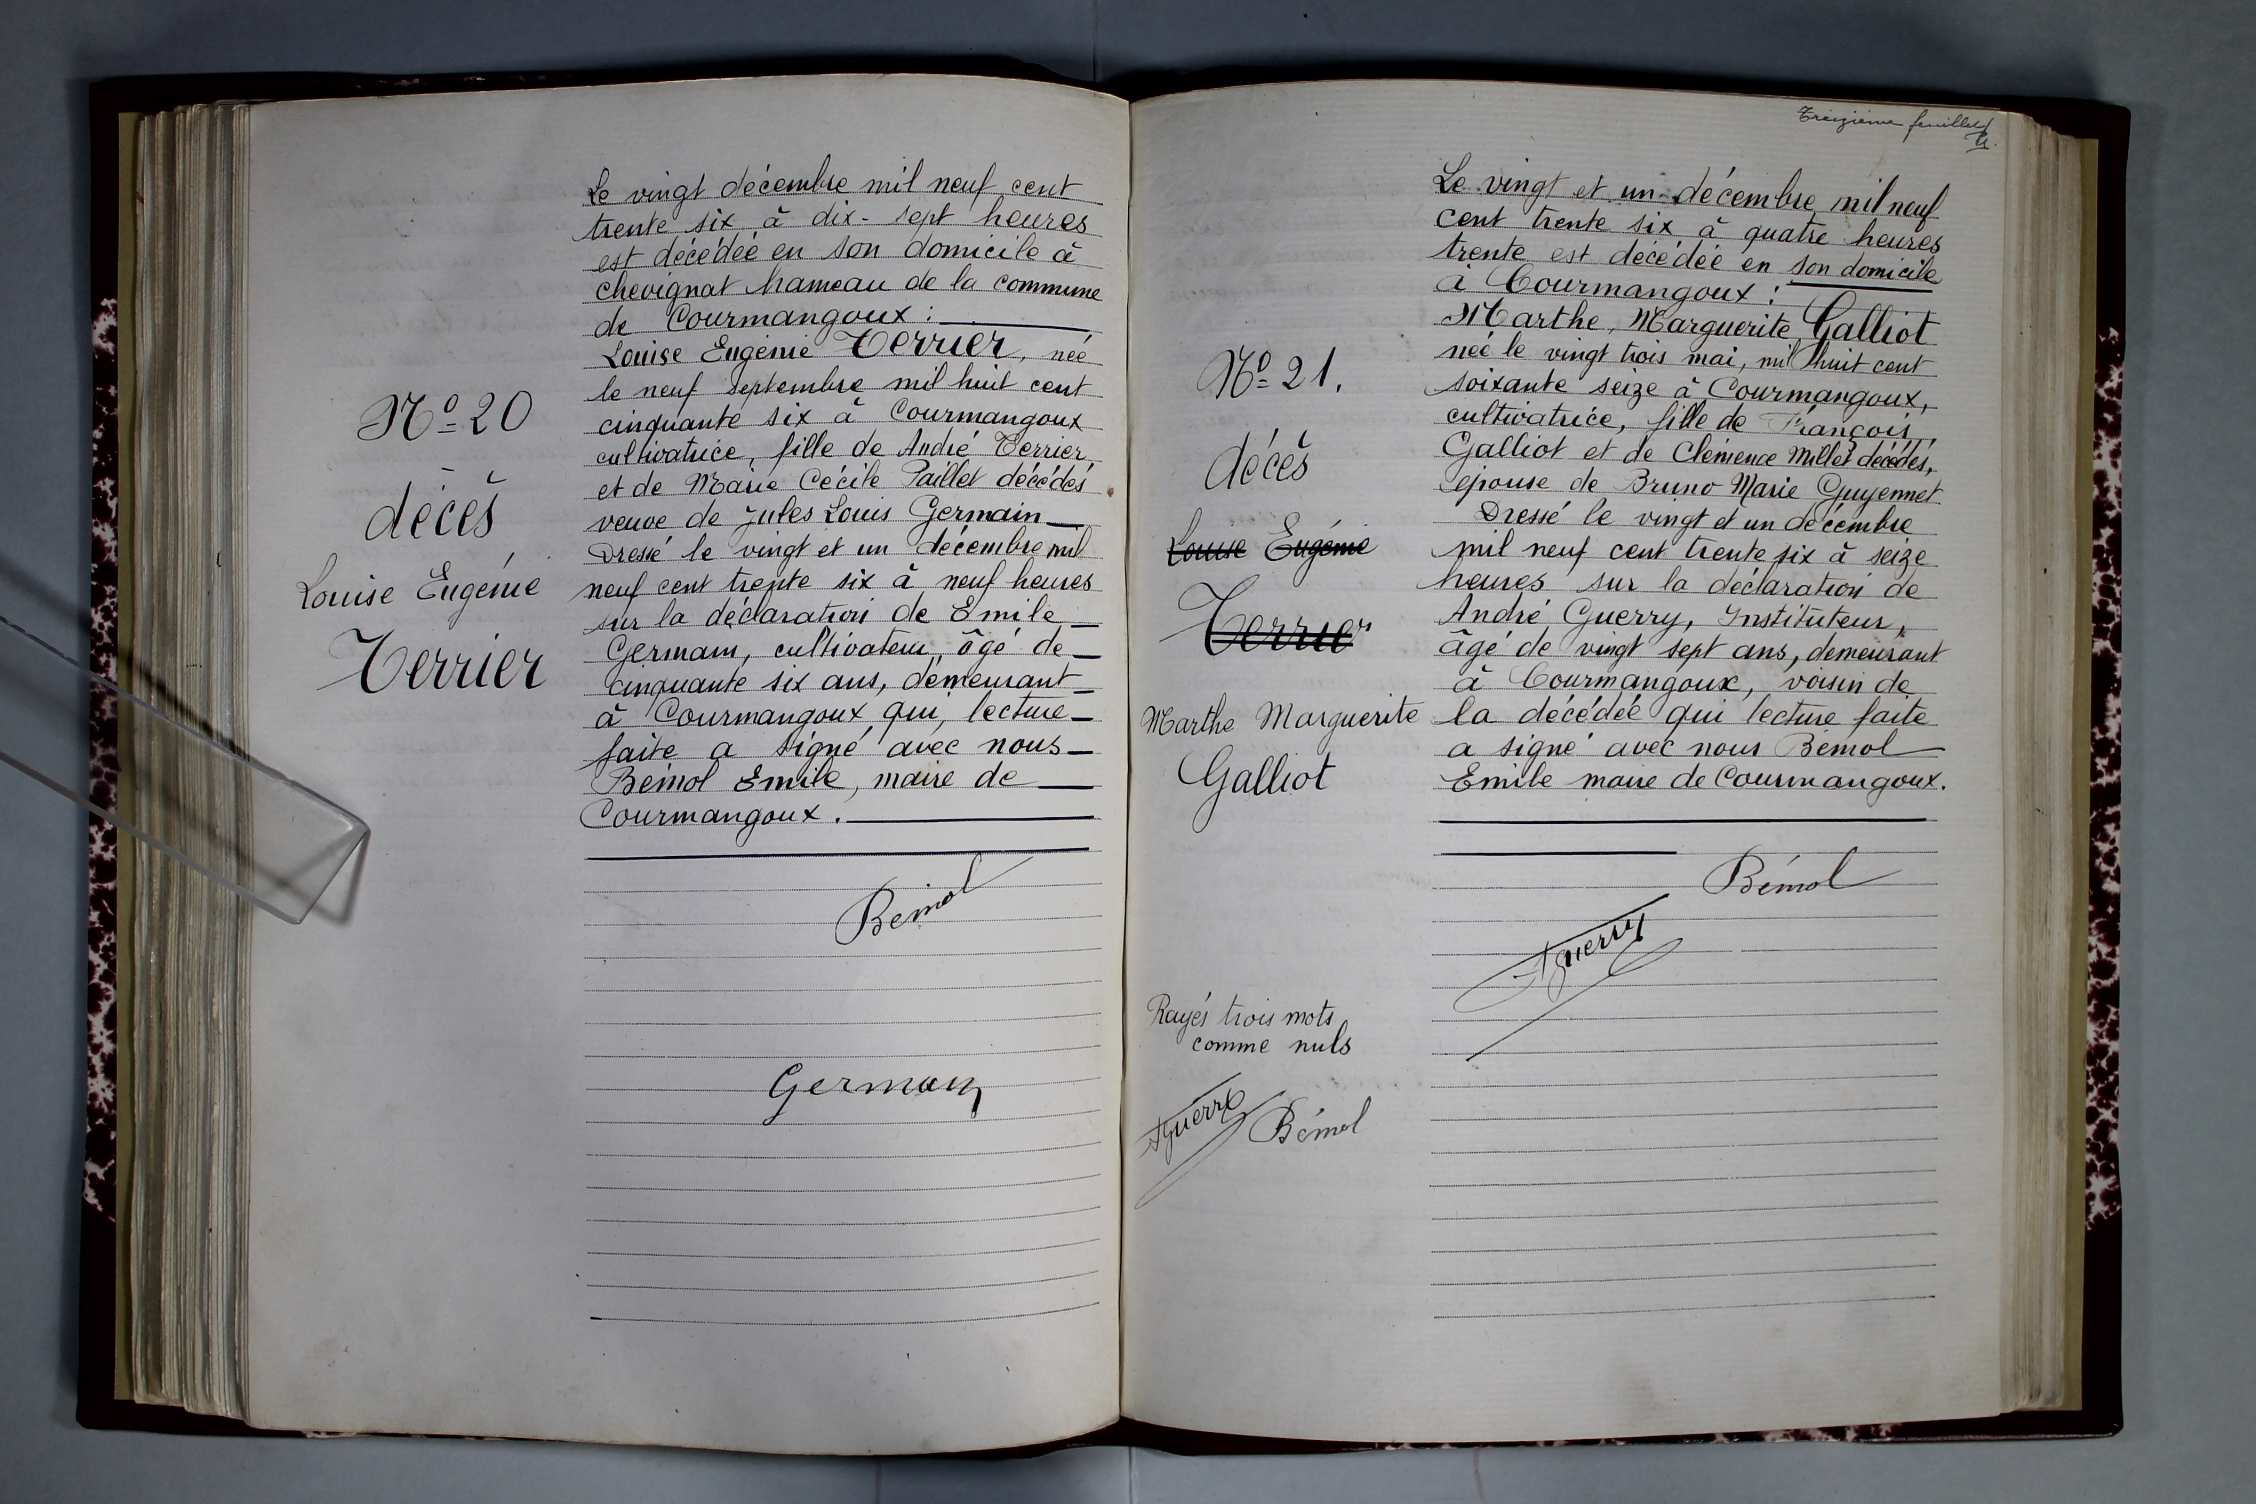 N° 20
décès
Louise Eugénie
Terrier
Le vingt décembre mil neuf cent
trente six à dix-sept heures
est décédée en son domicile à
chevignat hameau de la commune
de Courmangoux :
Louise Eugénie Terrier, née
le neuf septembre mil huit cent
cinquante six à Courmangoux
cultivatrice, fille de André Terrier
et de Marie Cécile Paillet décédés
veuve de Jules Louis Germain
Dressé le vingt et un décembre mil
neuf cent trente six à neuf heures
sur la déclaration de Emile
Germain, cultivateur, âgé de
cinquante six ans, demeurant
à Courmangoux qui, lecture
faite a signé avec nous
Bémol Emile, maire de
Courmangoux.
Bémol
Germain
Treizième feuillet
N° 21.
décès
Louise Eugénie
Terrier
Marthe Marguerite
Galliot
Rayés trois mots
comme nuls
AGuerry Bémol
Le vingt et un décembre mil neuf
cent trente six à quatre heures
trente est décédée en son domicile
à Courmangoux :
Marthe, Marguerite Galliot
née le vingt trois mai, mil huit cent
soixante seize à Courmangoux,
cultivatrice, fille de François
Galliot et de Clémence Millet décédés,
épouse de Bruno Marie Guyennet
Dressé le vingt et un décembre
mil neuf cent trente six à seize
heures sur la déclaration de
André Guerry, Instituteur,
âgé de vingt sept ans, demeurant
à Courmangoux, voisin de
la décédée qui lecture faite
a signé avec nous Bémol
Emile maire de Courmangoux.
Bémol
AGuerry